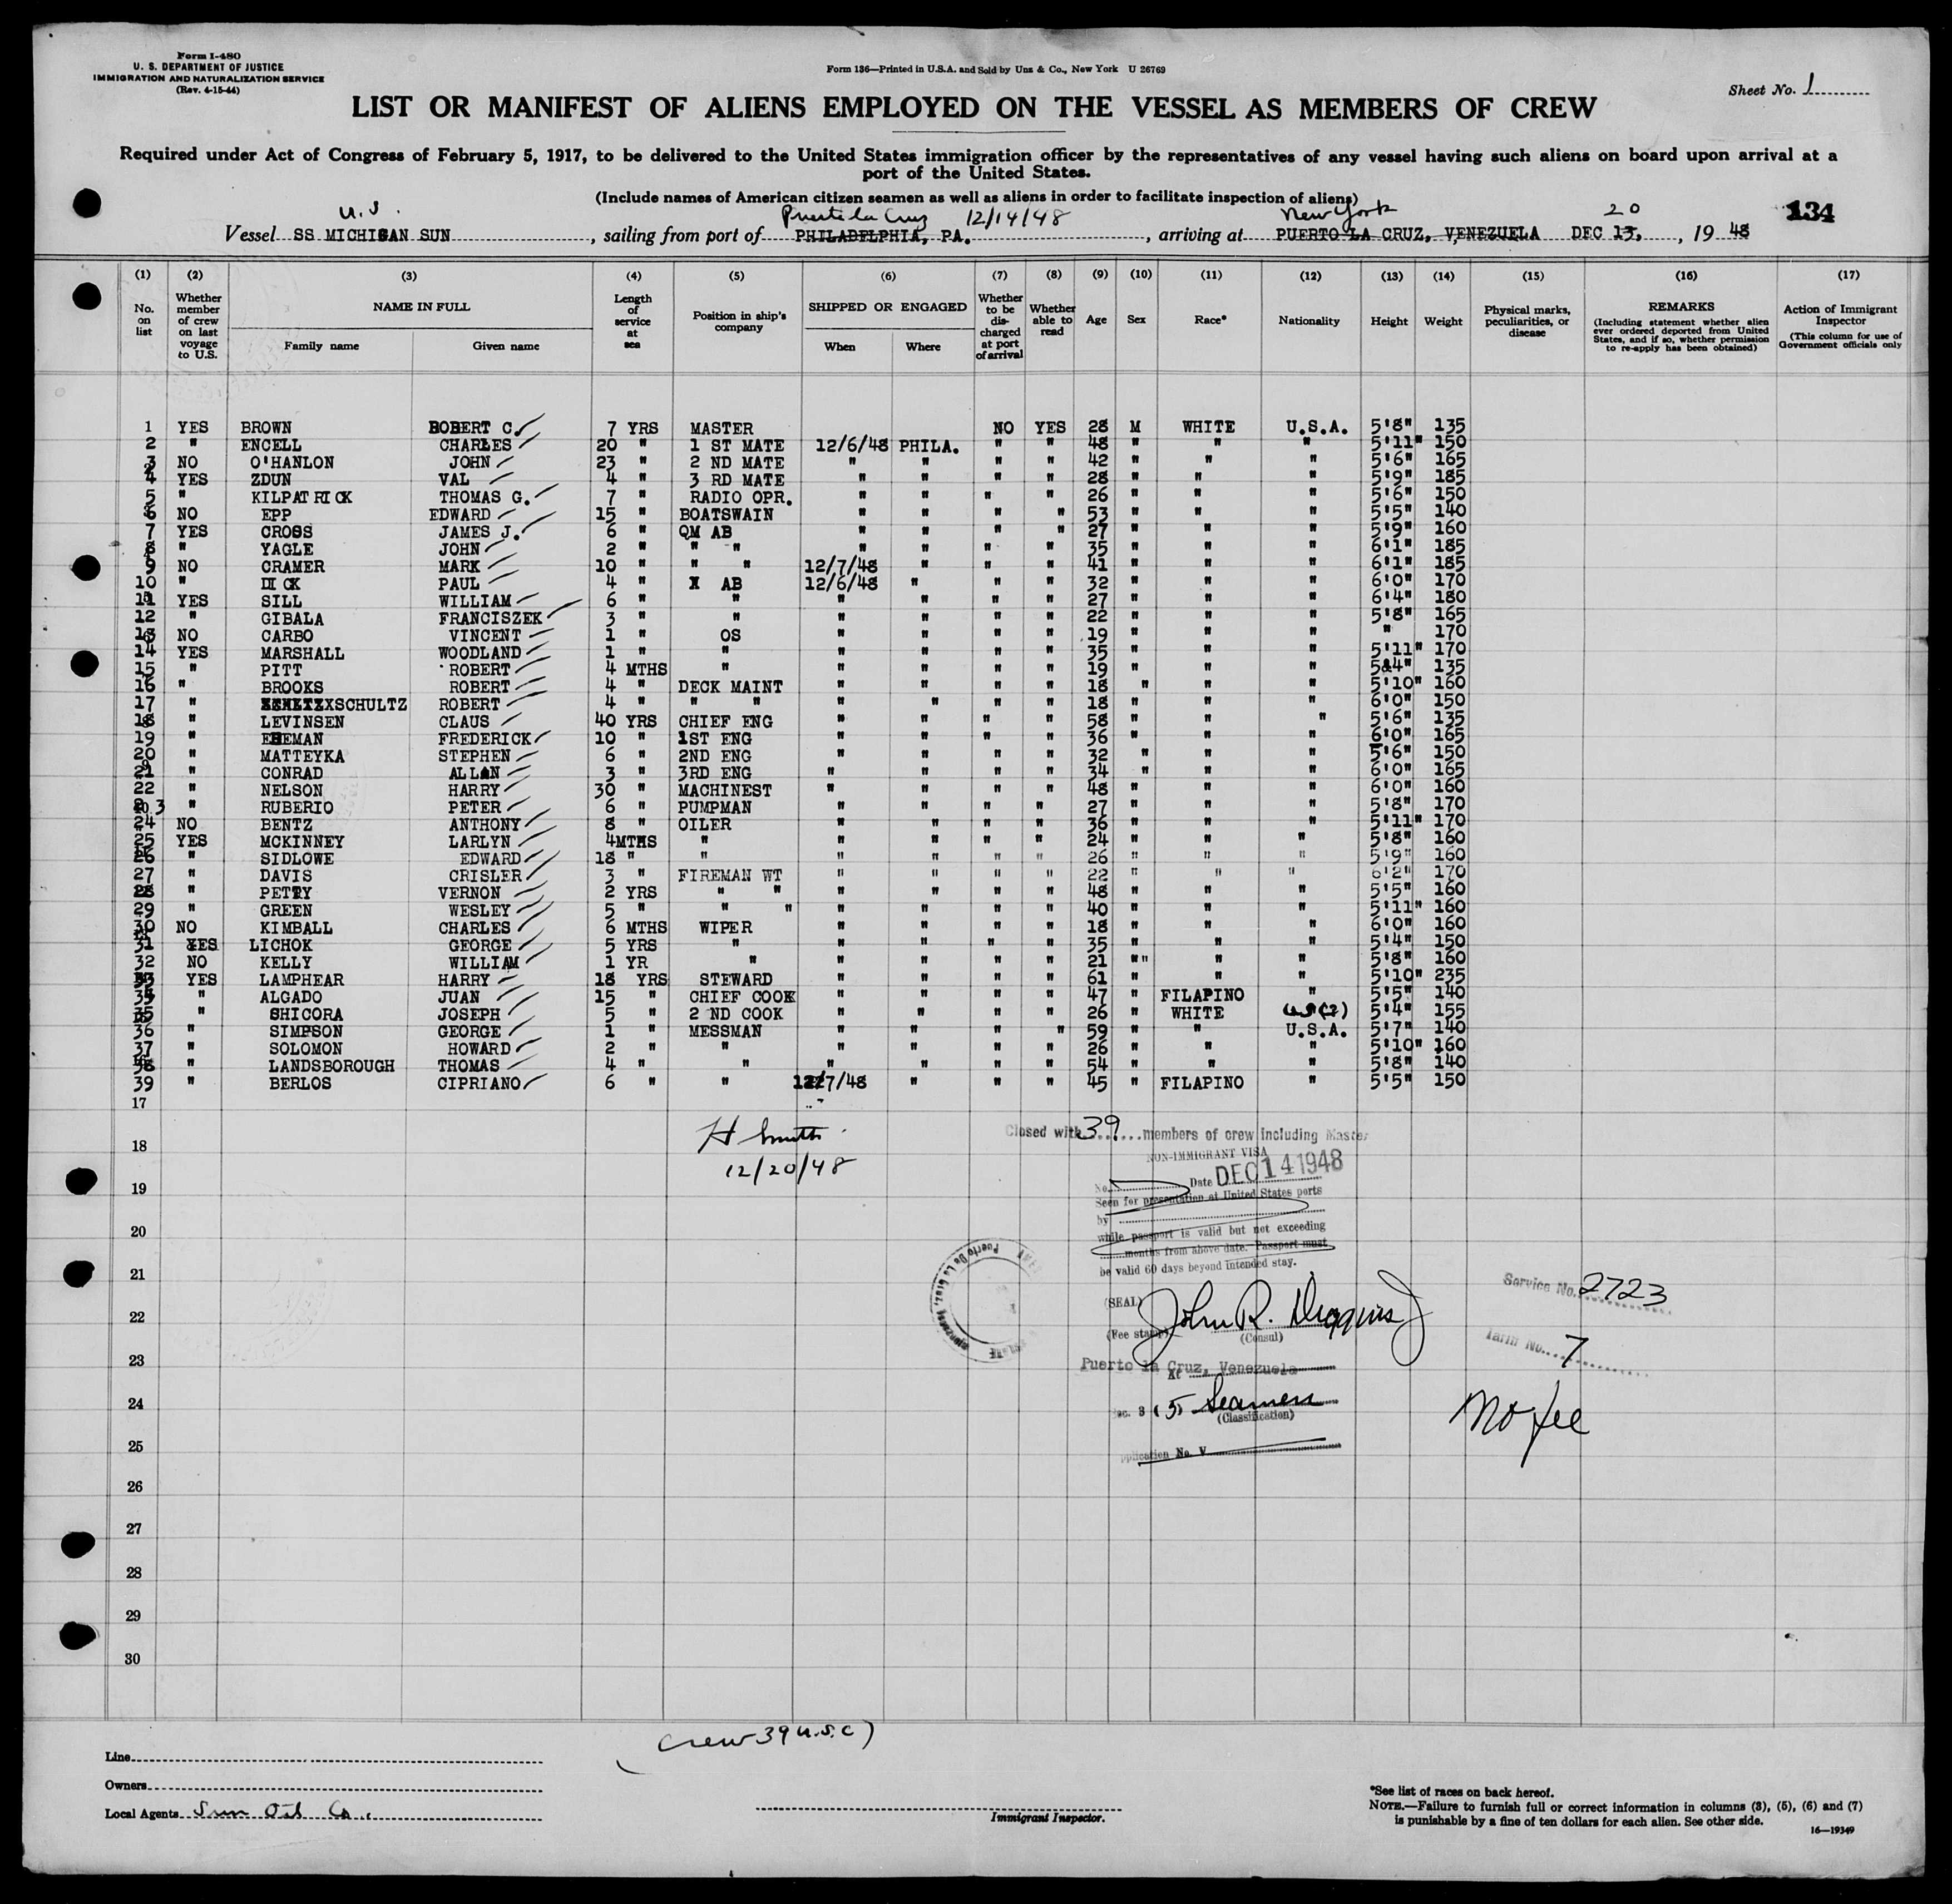 Form I-480
U. S. DEPARTMENT OF JUSTICE
IMMIGRATION AND NATURALIZATION SERVICE
(Rev. 4-15-44)
Form 136—Printed in U.S.A. and Sold by Unz & Co., New York U 26769
Sheet No. 1
LIST OR MANIFEST OF ALIENS EMPLOYED ON THE VESSEL AS MEMBERS OF CREW
Required under Act of Congress of February 5, 1917, to be delivered to the United States immigration officer by the representatives of any vessel having such aliens on board upon arrival at a
port of the United States.
(Include names of American citizen seamen as well as aliens in order to facilitate inspection of aliens)
U.S. Puerto la Cruz 12/14/48 New York 20 134
Vessel SS MICHIGAN SUN, sailing from port of PHILADELPHIA, PA., arriving at PUERTO LA CRUZ, VENEZUELA DEC 13, 1948
(1) (2) (3) (4) (5) (6) (7) (8) (9) (10) (11) (12) (13) (14) (15) (16) (17)
No. on list
Whether member of crew on last voyage to U.S.
NAME IN FULL
Family name Given name
Length of service at sea
Position in ship's company
SHIPPED OR ENGAGED
When Where
Whether to be discharged at port of arrival
Whether able to read
Age
Sex
Race*
Nationality
Height
Weight
Physical marks, peculiarities, or disease
REMARKS
(Including statement whether alien ever ordered deported from United States, and if so, whether permission to re-apply has been obtained)
Action of Immigrant Inspector
(This column for use of Government officials only
1 YES BROWN ROBERT C. 7 YRS MASTER NO YES 28 M WHITE U.S.A. 5'8" 135
2 " ENCELL CHARLES 20 " 1 ST MATE 12/6/48 PHILA. " " 48 " " " 5'11" 150
3 NO O'HANLON JOHN 23 " 2 ND MATE " " " " 42 " " " 5'6" 165
4 YES ZDUN VAL 4 " 3 RD MATE " " " " 28 " " " 5'9" 185
5 " KILPATRICK THOMAS G. 7 " RADIO OPR. " " " " 26 " " " 5'6" 150
6 NO EPP EDWARD 15 " BOATSWAIN " " " " 53 " " " 5'5" 140
7 YES CROSS JAMES J. 6 " QM AB " " " " 27 " " " 5'9" 160
8 " YAGLE JOHN 2 " " " " " " " 35 " " " 6'1" 185
9 NO CRAMER MARK 10 " " " 12/7/48 " " " 41 " " " 6'1" 185
10 " DICK PAUL 4 " AB 12/6/48 " " " 32 " " " 6'0" 170
11 YES SILL WILLIAM 6 " " " " " " 27 " " " 6'4" 180
12 " GIBALA FRANCISZEK 3 " " " " " " 22 " " " 5'8" 165
13 NO CARBO VINCENT 1 " OS " " " " 19 " " " " 170
14 YES MARSHALL WOODLAND 1 " " " " " " 35 " " " 5'11" 170
15 " PITT ROBERT 4 MTHS " " " " " 19 " " " 5'4" 135
16 " BROOKS ROBERT 4 " DECK MAINT " " " " 18 " " " 5'10" 160
17 " SCHULTZ ROBERT 4 " " " " " " " 18 " " " 6'0" 150
18 " LEVINSEN CLAUS 40 YRS CHIEF ENG " " " " 58 " " " 5'6" 135
19 " EHEMAN FREDERICK 10 " 1ST ENG " " " " 36 " " " 6'0" 165
20 " MATTEYKA STEPHEN 6 " 2ND ENG " " " " 32 " " " 5'6" 150
21 " CONRAD ALLAN 3 " 3RD ENG " " " " 34 " " " 6'0" 165
22 " NELSON HARRY 30 " MACHINEST " " " " 48 " " " 6'0" 160
23 " RUBERIO PETER 6 " PUMPMAN " " " " 27 " " " 5'8" 170
24 NO BENTZ ANTHONY 8 " OILER " " " " 36 " " " 5'11" 170
25 YES MCKINNEY LARLYN 4MTHS " " " " " 24 " " " 5'8" 160
26 " SIDLOWE EDWARD 18 " " " " " " 26 " " " 5'9" 160
27 " DAVIS CRISLER 3 " FIREMAN WT " " " " 22 " " " 6'2" 170
28 " PETTY VERNON 2 YRS " " " " " " 48 " " " 5'5" 160
29 " GREEN WESLEY 5 " " " " " " " 40 " " " 5'11" 160
30 NO KIMBALL CHARLES 6 MTHS WIPER " " " " 18 " " " 6'0" 160
31 YES LICHOK GEORGE 5 YRS " " " " " 35 " " " 5'4" 150
32 NO KELLY WILLIAM 1 YR " " " " " 21 " " " 5'8" 160
33 YES LAMPHEAR HARRY 18 YRS STEWARD " " " " 61 " " " 5'10" 235
34 " ALGADO JUAN 15 " CHIEF COOK " " " " 47 " FILAPINO " 5'5" 140
35 " SHICORA JOSEPH 5 " 2 ND COOK " " " " 26 " WHITE 5'4" 155
36 " SIMPSON GEORGE 1 " MESSMAN " " " " 59 " " U.S.A. 5'7" 140
37 " SOLOMON HOWARD 2 " " " " " " 26 " " " 5'10" 160
38 " LANDSBOROUGH THOMAS 4 " " " " " " 54 " " " 5'8" 140
39 " BERLOS CIPRIANO 6 " " 12/7/48 " " " 45 " FILAPINO " 5'5" 150
17
18
19
20
21
22
23
24
25
26
27
28
29
30
H Smith
12/20/48
Closed with 39 members of crew including Master
NON-IMMIGRANT VISA
No. Date DEC 14 1948
Seen for presentation at United States ports
by
while passport is valid but not exceeding
months from above date. Passport must
be valid 60 days beyond intended stay.
(SEAL)
John R. Diggins Jr
(Fee stamp) (Consul)
Puerto la Cruz, Venezuela
At
Sec. 3 (5) Seamen
(Classification)
Application No. V
Service No. 2723
Tariff No. 7
No fee
(Crew 39 U.S.C)
Line
Owners
Local Agents Sun Oil Co.
Immigrant Inspector.
*See list of races on back hereof.
NOTE.—Failure to furnish full or correct information in columns (3), (5), (6) and (7)
is punishable by a fine of ten dollars for each alien. See other side.
16—19349